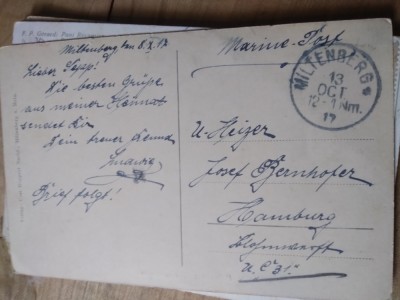 Miltenberg den 8.X.17
Lieber Sepp!
Die besten Grüße
aus meiner Heimat
sendet Dir
Dein treuer
Brief folgt!
Marine-Post
MILTENBERG
13
OCT
12-1 Nm.
17
U-Heizer
Josef Bernhofer
Hamburg